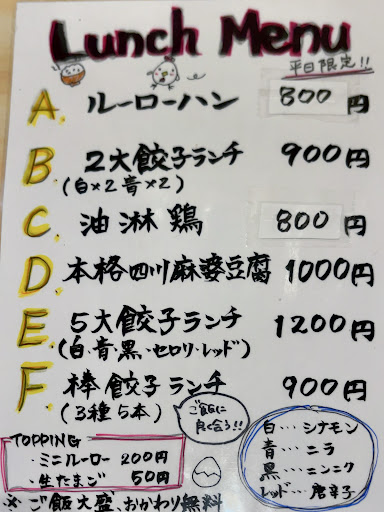 Lunch Menu
平日限定!!
A. ルーローハン 800円
B. 2大餃子ランチ 900円
(白×2 青×2)
C. 油淋鶏 800円
D. 本格四川麻婆豆腐 1000円
E. 5大餃子ランチ 1200円
(白・青・黒・セロリ・レッド)
F. 棒餃子ランチ 900円
(3種5本)
ご飯に
良く合う!!
TOPPING
・ミニルーロー 200円
・生たまご 50円
※ご飯大盛、おかわり無料
白…シナモン
青…ニラ
黒…ニンニク
レッド…唐辛子